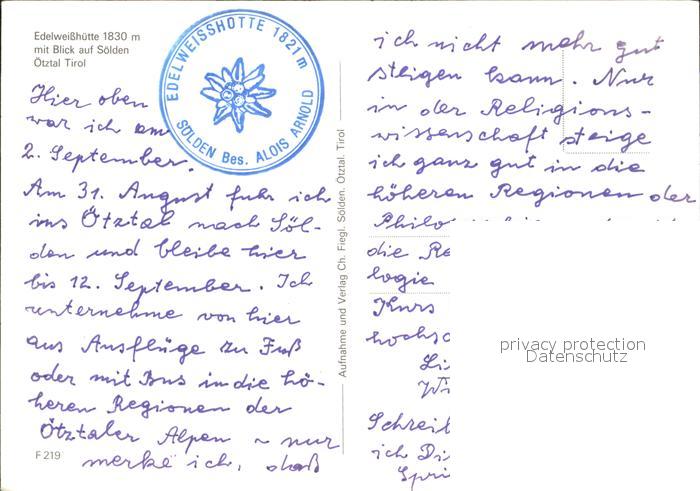 Edelweißhütte 1830 m
mit Blick auf Sölden
Ötztal Tirol
EDELWEISSHÜTTE 1821 m
SÖLDEN Bes. ALOIS ARNOLD
Hier oben
war ich am
2. September.
Am 31. August fuhr ich
ins Ötztal nach Söl-
den und bleibe hier
bis 12. September. Ich
unternehme von hier
aus Ausflüge zu Fuß
oder mit Bus in die hö-
heren Regionen der
Ötztaler Alpen ~ nur
merke ich, daß
F 219
Aufnahme und Verlag Ch. Fiegl. Sölden. Ötztal. Tirol
ich nicht mehr gut
steigen kann. Nur
in der Religions-
wissenschaft steige
ich ganz gut in die
höheren Regionen der
Philo
die Re
logie
Kurs
hochsc
Li
Wi
Schreib
ich Di
Spri
privacy protection
Datenschutz